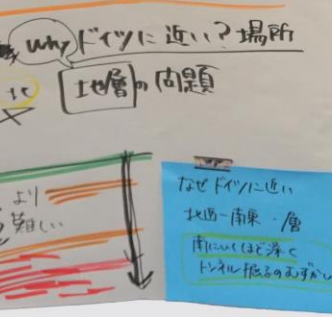 Why ドイツに近い?場所
北
地層の問題
より
難しい
なぜドイツに近い
北西→南東・層
南にいくほど深く
トンネル掘るのむずかしい